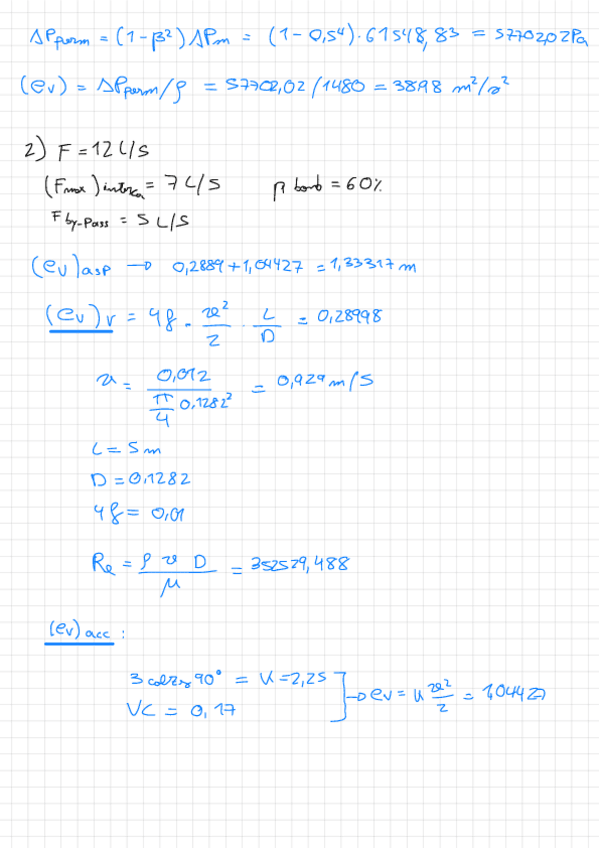 ΔPperm = (1-β²) ΔPm = (1-0,5⁴)·61548,83 = 57702,02 Pa
(ev) = ΔPperm/ρ = 57702,02/1480 = 38,98 m²/s²
2) F = 12 L/s
(Fmax) interca = 7 L/s η bomb = 60%
F by-Pass = 5 L/s
(ev)asp → 0,2889+1,04427 = 1,33317 m
(ev)r = 4f · v²/2 · L/D = 0,28998
v = 0,012 / (π/4 0,1282²) = 0,929 m/s
L = 5 m
D = 0,1282
4f = 0,01
Re = ρ v D / μ = 352529,488
(ev) acc :
3 codos 90° = K = 2,25
VC = 0,17 → ev = K v²/2 = 1,04427